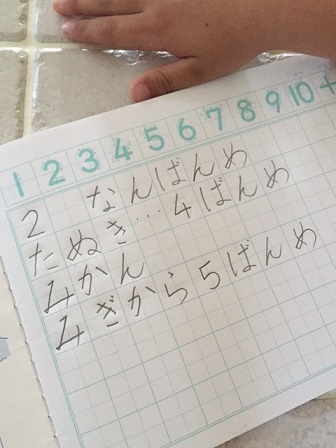 1 2 3 4 5 6 7 8 9 10 +
2 なんばんめ
たぬき…4ばんめ
みかん
みぎから5ばんめ